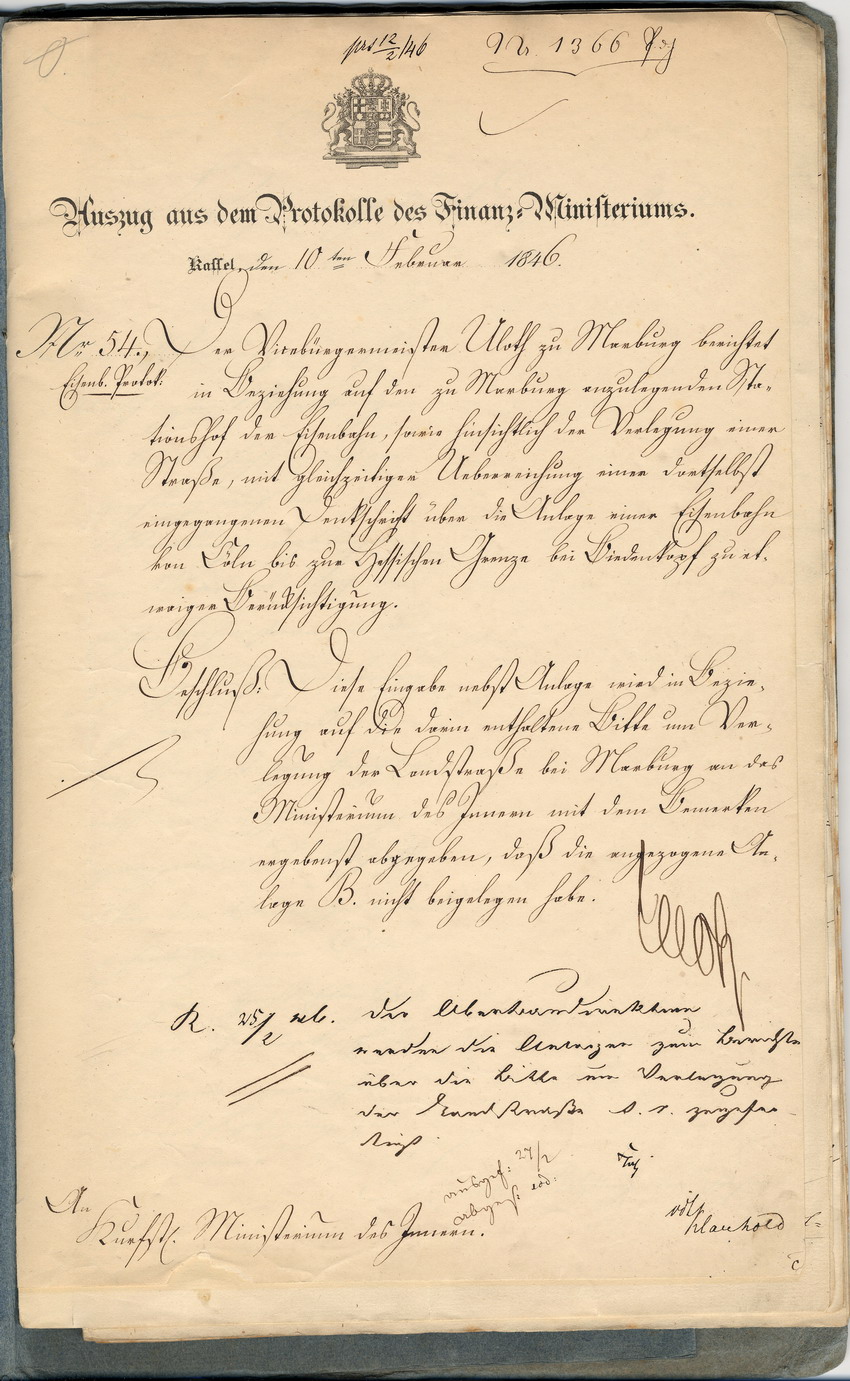 prs 12/2/46
Nr. 1366
Auszug aus dem Protokolle des Finanz-Ministeriums.
Kassel, den 10ten Februar 1846.
Nr. 54., Der Vicebürgermeister Uloth zu Marburg berichtet
Eisenb. Protok:
in Beziehung auf den zu Marburg anzulegenden Sta-
tionshof der Eisenbahn, sowie hinsichtlich der Verlegung einer
Straße, mit gleichzeitiger Ueberreichung einer dortselbst
eingegangenen Denkschrift über die Anlage einer Eisenbahn
von Cöln bis zur Hessischen Grenze bei Biedenkopf zu et-
waiger Berücksichtigung.
Beschluß: Diese Eingabe nebst Anlage wird in Bezie-
hung auf die darin enthaltene Bitte um Ver-
legung der Landstraße bei Marburg an das
Ministerium des Innern mit dem Bemerken
ergebenst abgegeben, daß die angezogene An-
lage B. nicht beigelegen habe.
R. 25/2 46. Der Oberbaudirektion
werden die Anlagen zum Berichte
über die Bitte um Verlegung
der Landstraße
ausgef: 27/2
abges: eod:
An
Kurfstl. Ministerium des Innern.